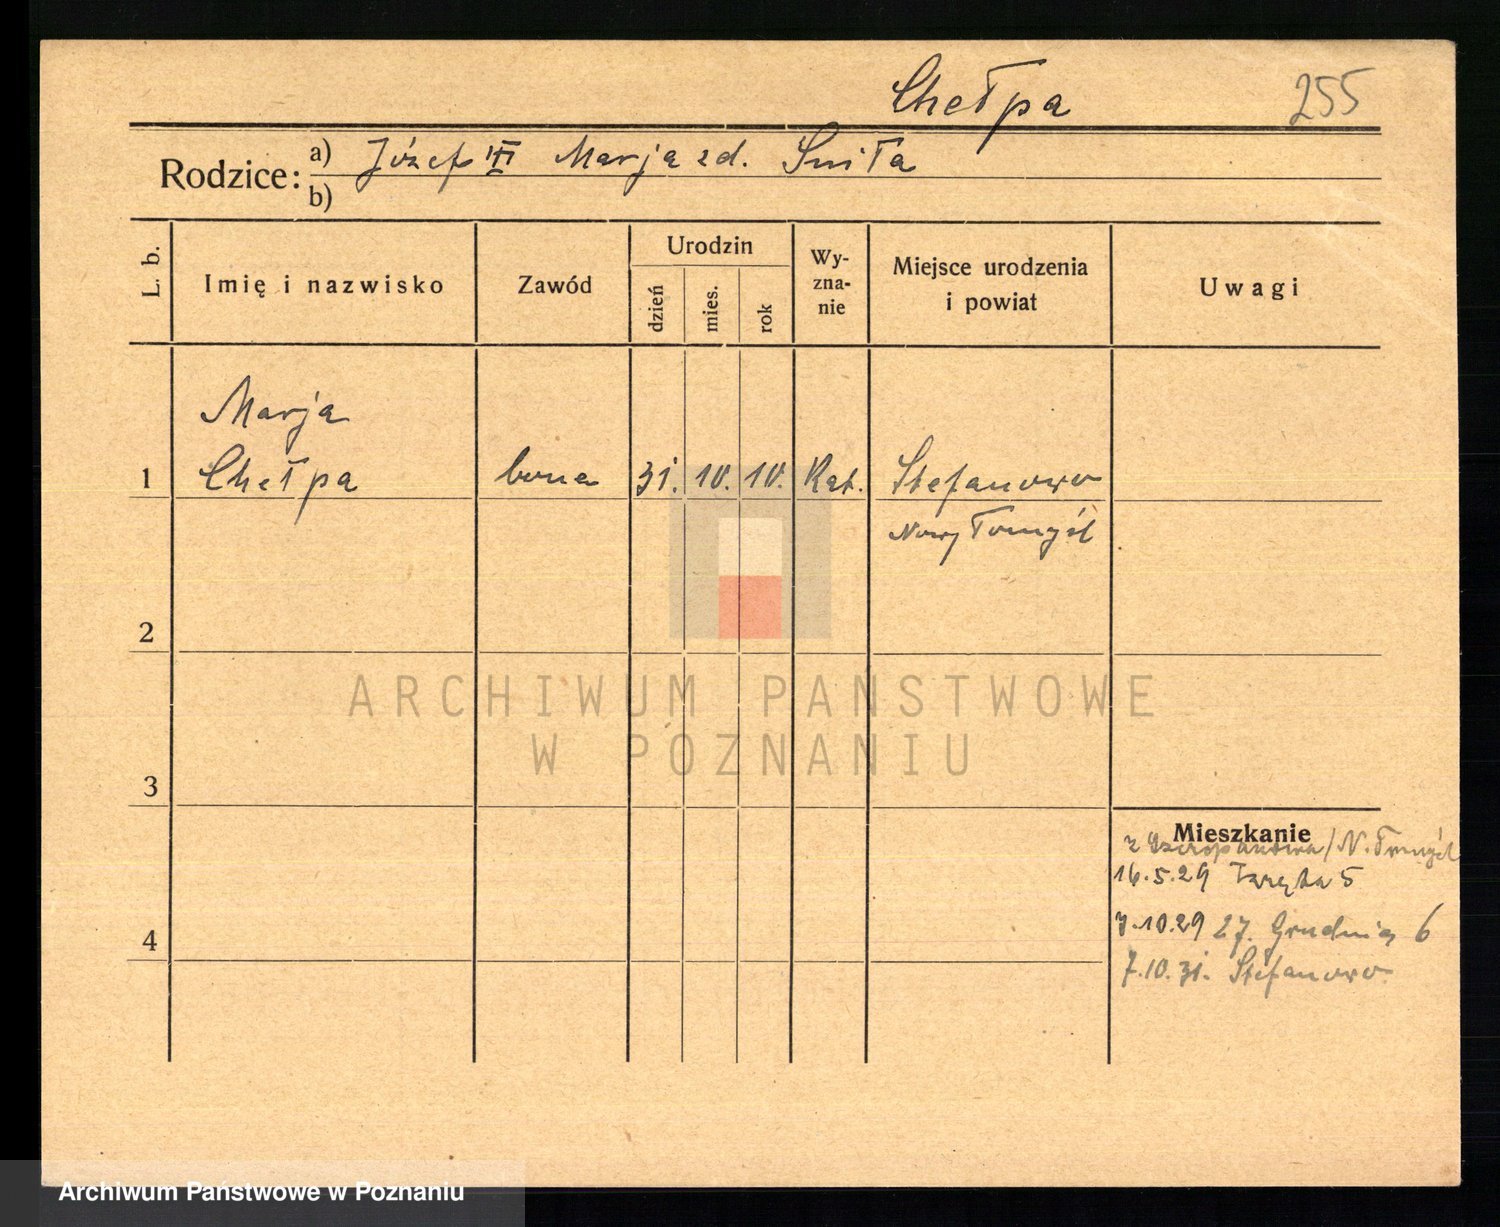 Chełpa 255
Rodzice: a) Józef III Marja zd. Śniła
b)
L. b. Imię i nazwisko Zawód Urodzin dzień mies. rok Wy-zna-nie Miejsce urodzenia i powiat Uwagi
Marja
1 Chełpa bona 31. 10. 10. Kat. Stefanowo
Nowy Tomyśl
2
ARCHIWUM PAŃSTWOWE
W POZNANIU
3
Mieszkanie
z /N. Tomyśl
16.5.29 5
4 7.10.29 27. Grudnia 6
7.10.31. Stefanowo
Archiwum Państwowe w Poznaniu